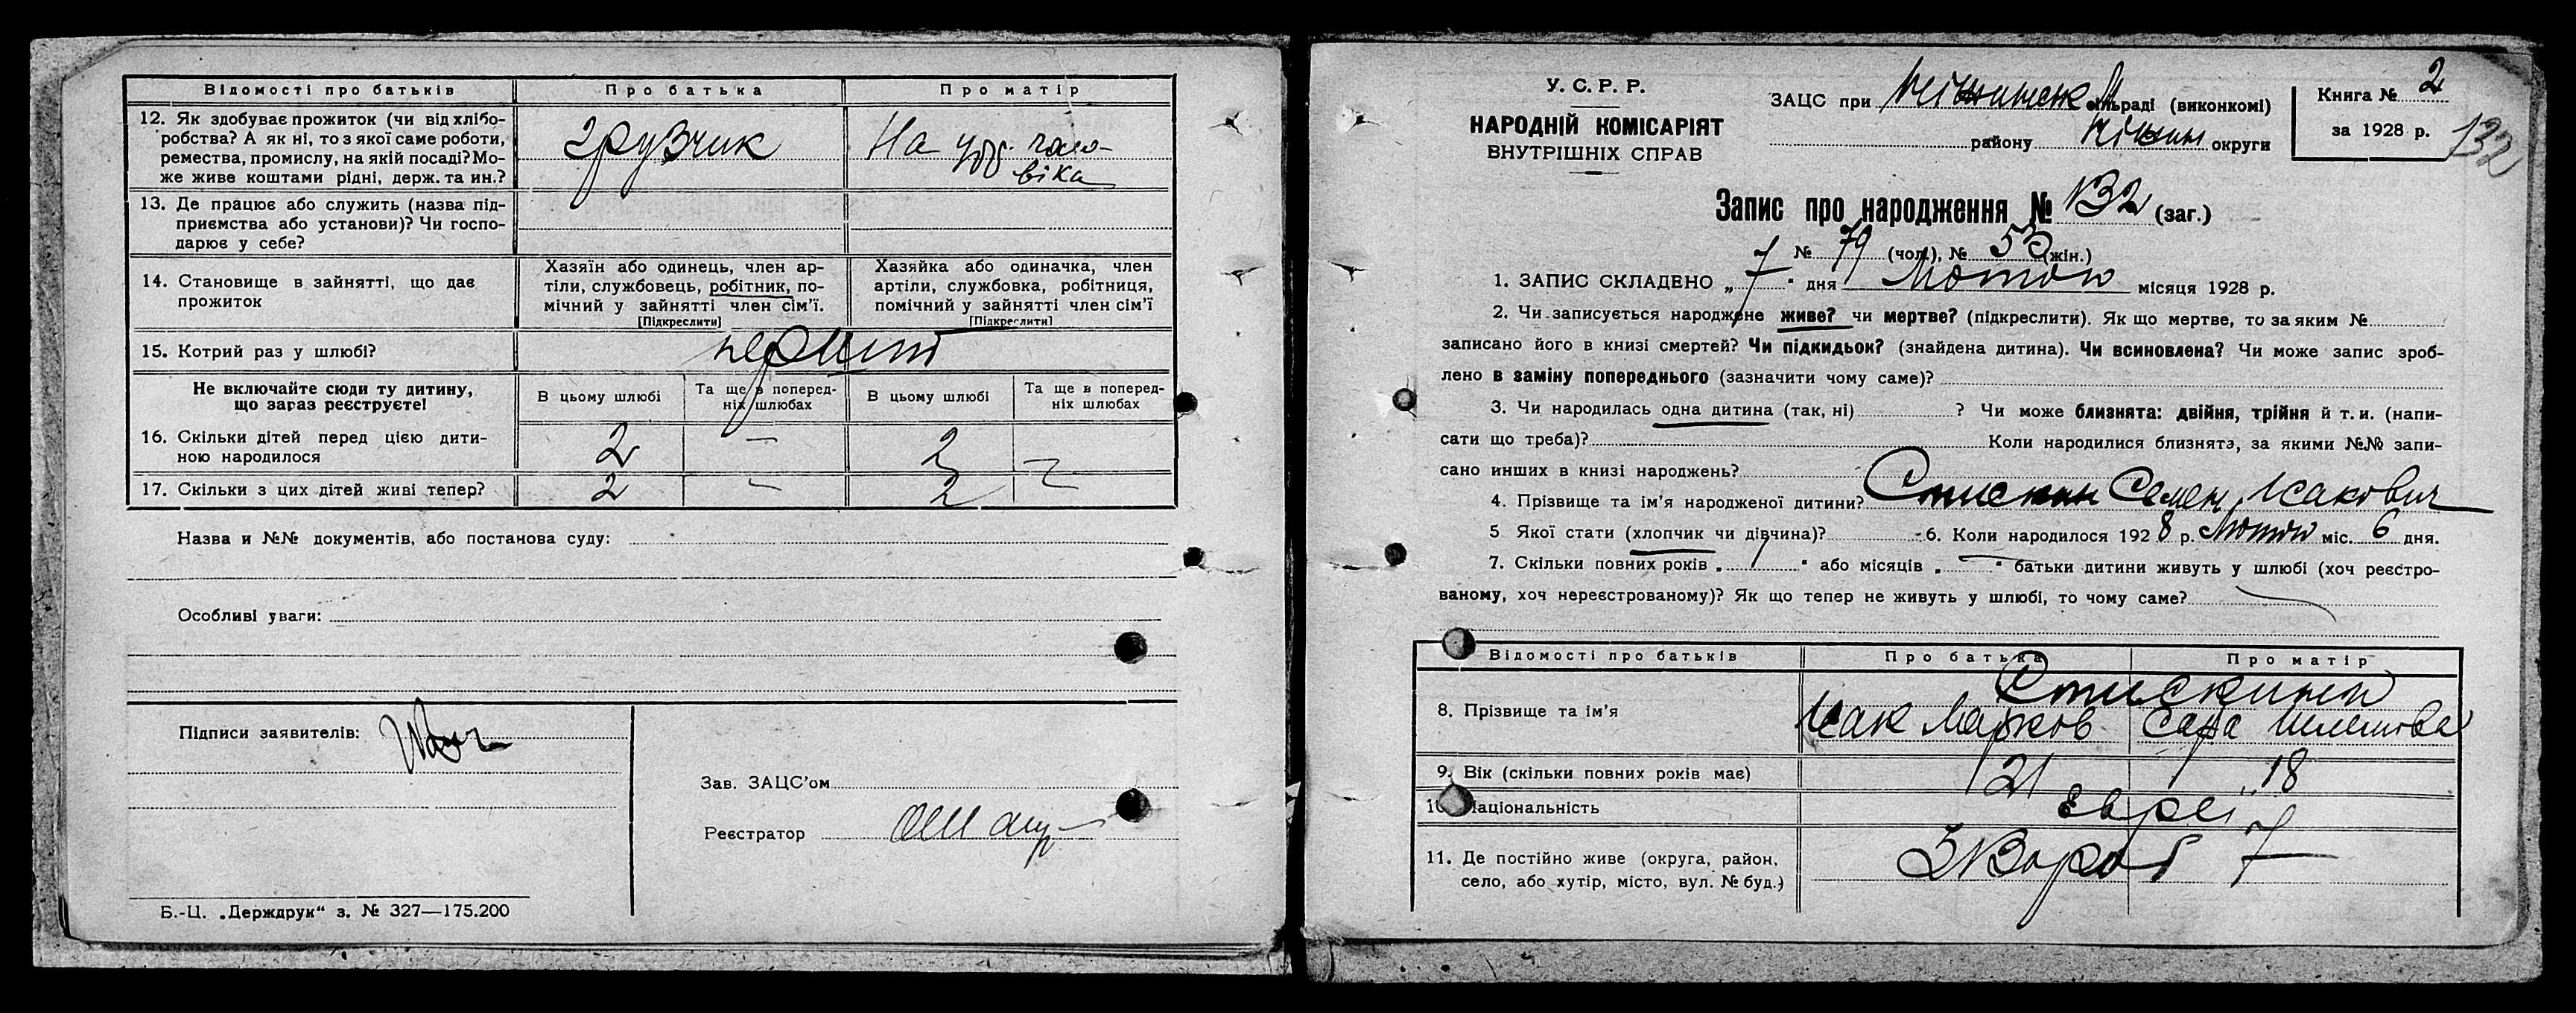 Відомості про батьків
Про батька
Про матір
12. Як здобуває прожиток (чи від хлібо-
робства? А як ні, то з якої саме роботи,
ремества, промислу, на якій посаді? Мо-
же живе коштами рідні, держ. та ин.?
грузчик
На утр. чоло-
віка
13. Де працює або служить (назва під-
приємства або установи)? Чи госпо-
дарює у себе?
14. Становище в зайнятті, що дає
прожиток
Хазяїн або одинець, член ар-
тіли, службовець, робітник, по-
мічний у зайнятті член сім'ї.
[Підкреслити]
Хазяйка або одиначка, член
артіли, службовка, робітниця,
помічний у зайнятті член сім'ї
[Підкреслити]
15. Котрий раз у шлюбі?
Не включайте сюди ту дитину,
що зараз реєструєте!
В цьому шлюбі
Та ще в поперед-
ніх шлюбах
В цьому шлюбі
Та ще в поперед-
ніх шлюбах
16. Скільки дітей перед цією дити-
ною народилося
2 — 2
17. Скільки з цих дітей живі тепер?
2 — 2 —
Назва и №№ документів, або постанова суду:
Особливі уваги:
Підписи заявителів:
Зав. ЗАЦС'ом
Реєстратор
Б.-Ц. „Держдрук“ з. № 327—175.200
У. С. Р. Р.
НАРОДНІЙ КОМІСАРІЯТ
ВНУТРІШНІХ СПРАВ
ЗАЦС при сільраді (виконкомі)
району Ніжин округи
Книга № 2
за 1928 р.
132
Запис про народження № 132 (заг.)
№ 79 (чол.), № 53 (жін.)
1. ЗАПИС СКЛАДЕНО „7“ дня Лютого місяця 1928 р.
2. Чи записується народжене живе? чи мертве? (підкреслити). Як що мертве, то за яким №
записано його в книзі смертей? Чи підкидьок? (знайдена дитина). Чи всиновлена? Чи може запис зроб-
лено в заміну попереднього (зазначити чому саме)?
3. Чи народилась одна дитина (так, ні) ? Чи може близнята: двійня, трійня й т. и. (напи-
сати що треба)? Коли народилися близнята, за якими №№ запи-
сано инших в книзі народжень?
4. Прізвище та ім'я народженої дитини? Стискин Семен Исакович
5 Якої стати (хлопчик чи дівчина)? 6. Коли народилося 1928 р. Лютого міс. 6 дня.
7. Скільки повних років „ “ або місяців „—“ батьки дитини живуть у шлюбі (хоч реєстро-
ваному, хоч нереєстрованому)? Як що тепер не живуть у шлюбі, то чому саме?
Відомості про батьків
Про батька
Про матір
8. Прізвище та ім'я
Исак Марков
Сара
9. Вік (скільки повних років має)
21
18
10. Національність
Евреї
11. Де постійно живе (округа, район,
село, або хутір, місто, вул. № буд.)
7